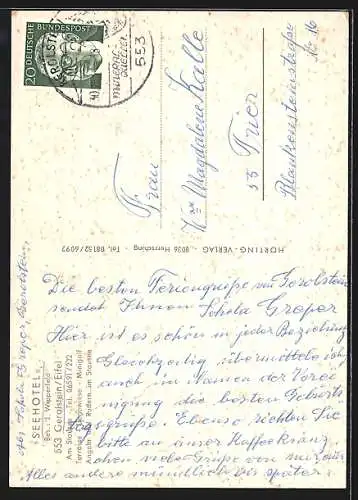 DEUTSCHE BUNDESPOST
20
GEROLSTEIN
mineral-
quellen
553
Frau
Magdalene Kalle
55 Trier
Blankensteinstraße
Nr 16
HORTING-VERLAG · 8036 Herrsching · Tel. 08152/6092
"SEEHOTEL"
Bes.: J. Weppelfeld
553 Gerolstein/Eifel
Am Stausee, Tel. 06591/222
Terrasse – Liegewiese – Minigolf
Angeln und Rudern im Stausee
Die besten Feriengrüße von Gerolstein
sendet Ihnen Schola Greper
Hier ist es schön in jeder Beziehung
Gleichzeitig übermittele ich
auch im Namen der Verei
nigung die besten Geburts
tagsgrüße. Ebenso richten Sie
bitte an unser Kaffeekränz
chen viele Grüße von mir aus.
Alles andere mündlich bis später.